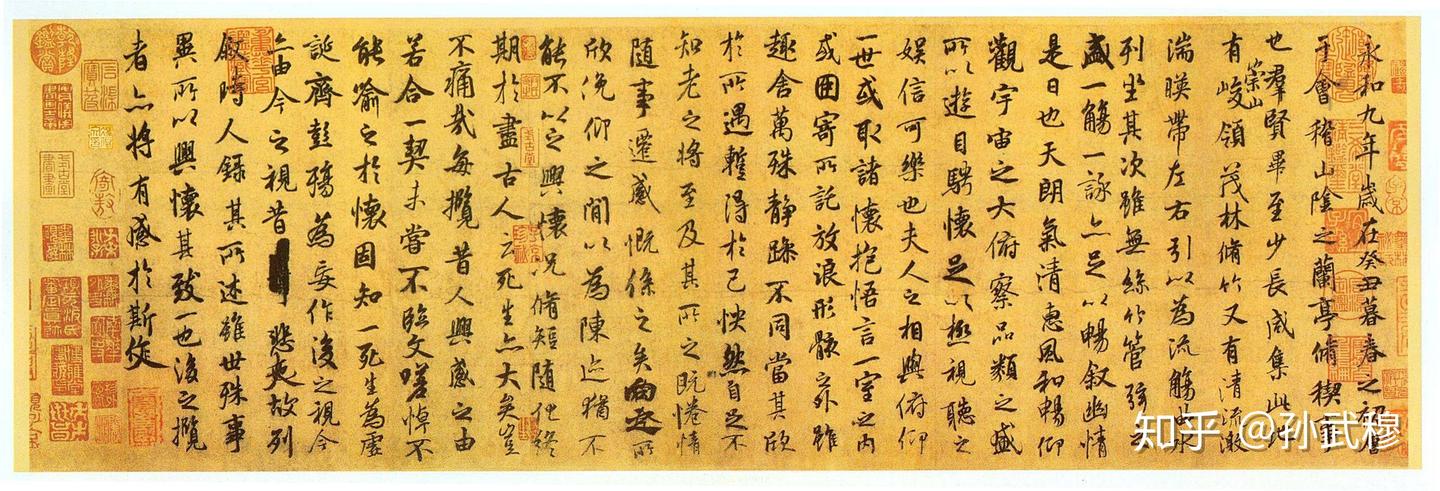 永和九年歲在癸丑暮春之初會
于會稽山陰之蘭亭脩稧事
也羣賢畢至少長咸集此地
有崇山峻領茂林脩竹又有清流激
湍暎帶左右引以為流觴曲水
列坐其次雖無絲竹管弦之
盛一觴一詠亦足以暢叙幽情
是日也天朗氣清惠風和暢仰
觀宇宙之大俯察品類之盛
所以遊目騁懷足以極視聽之
娛信可樂也夫人之相與俯仰
一世或取諸懷抱悟言一室之內
或因寄所託放浪形骸之外雖
趣舍萬殊靜躁不同當其欣
於所遇蹔得於己怏然自足不
知老之將至及其所之既惓情
隨事遷感慨係之矣向之所
欣俛仰之閒以為陳迹猶不
能不以之興懷況脩短隨化終
期於盡古人云死生亦大矣豈
不痛哉每攬昔人興感之由
若合一契未嘗不臨文嗟悼不
能喻之於懷固知一死生為虛
誕齊彭殤為妄作後之視今
亦由今之視昔悲夫故列
叙時人錄其所述雖世殊事
異所以興懷其致一也後之攬
者亦將有感於斯文
知乎 @孙武穆